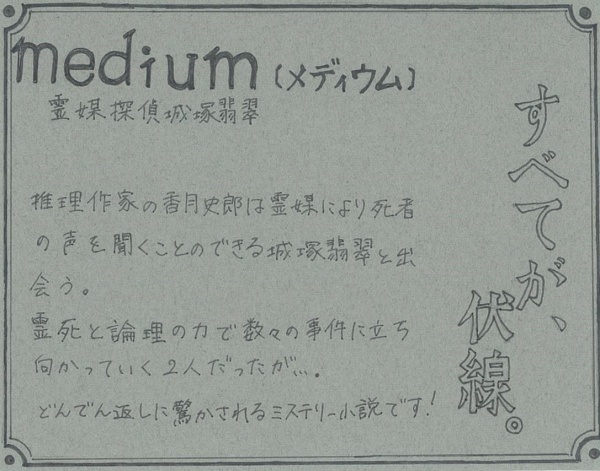 medium（メディウム）
霊媒探偵城塚翡翠
すべてが、
伏線。
推理作家の香月史郎は霊媒により死者
の声を聞くことのできる城塚翡翠と出
会う。
霊死と論理の力で数々の事件に立ち
向かっていく2人だったが…。
どんでん返しに驚かされるミステリー小説です!